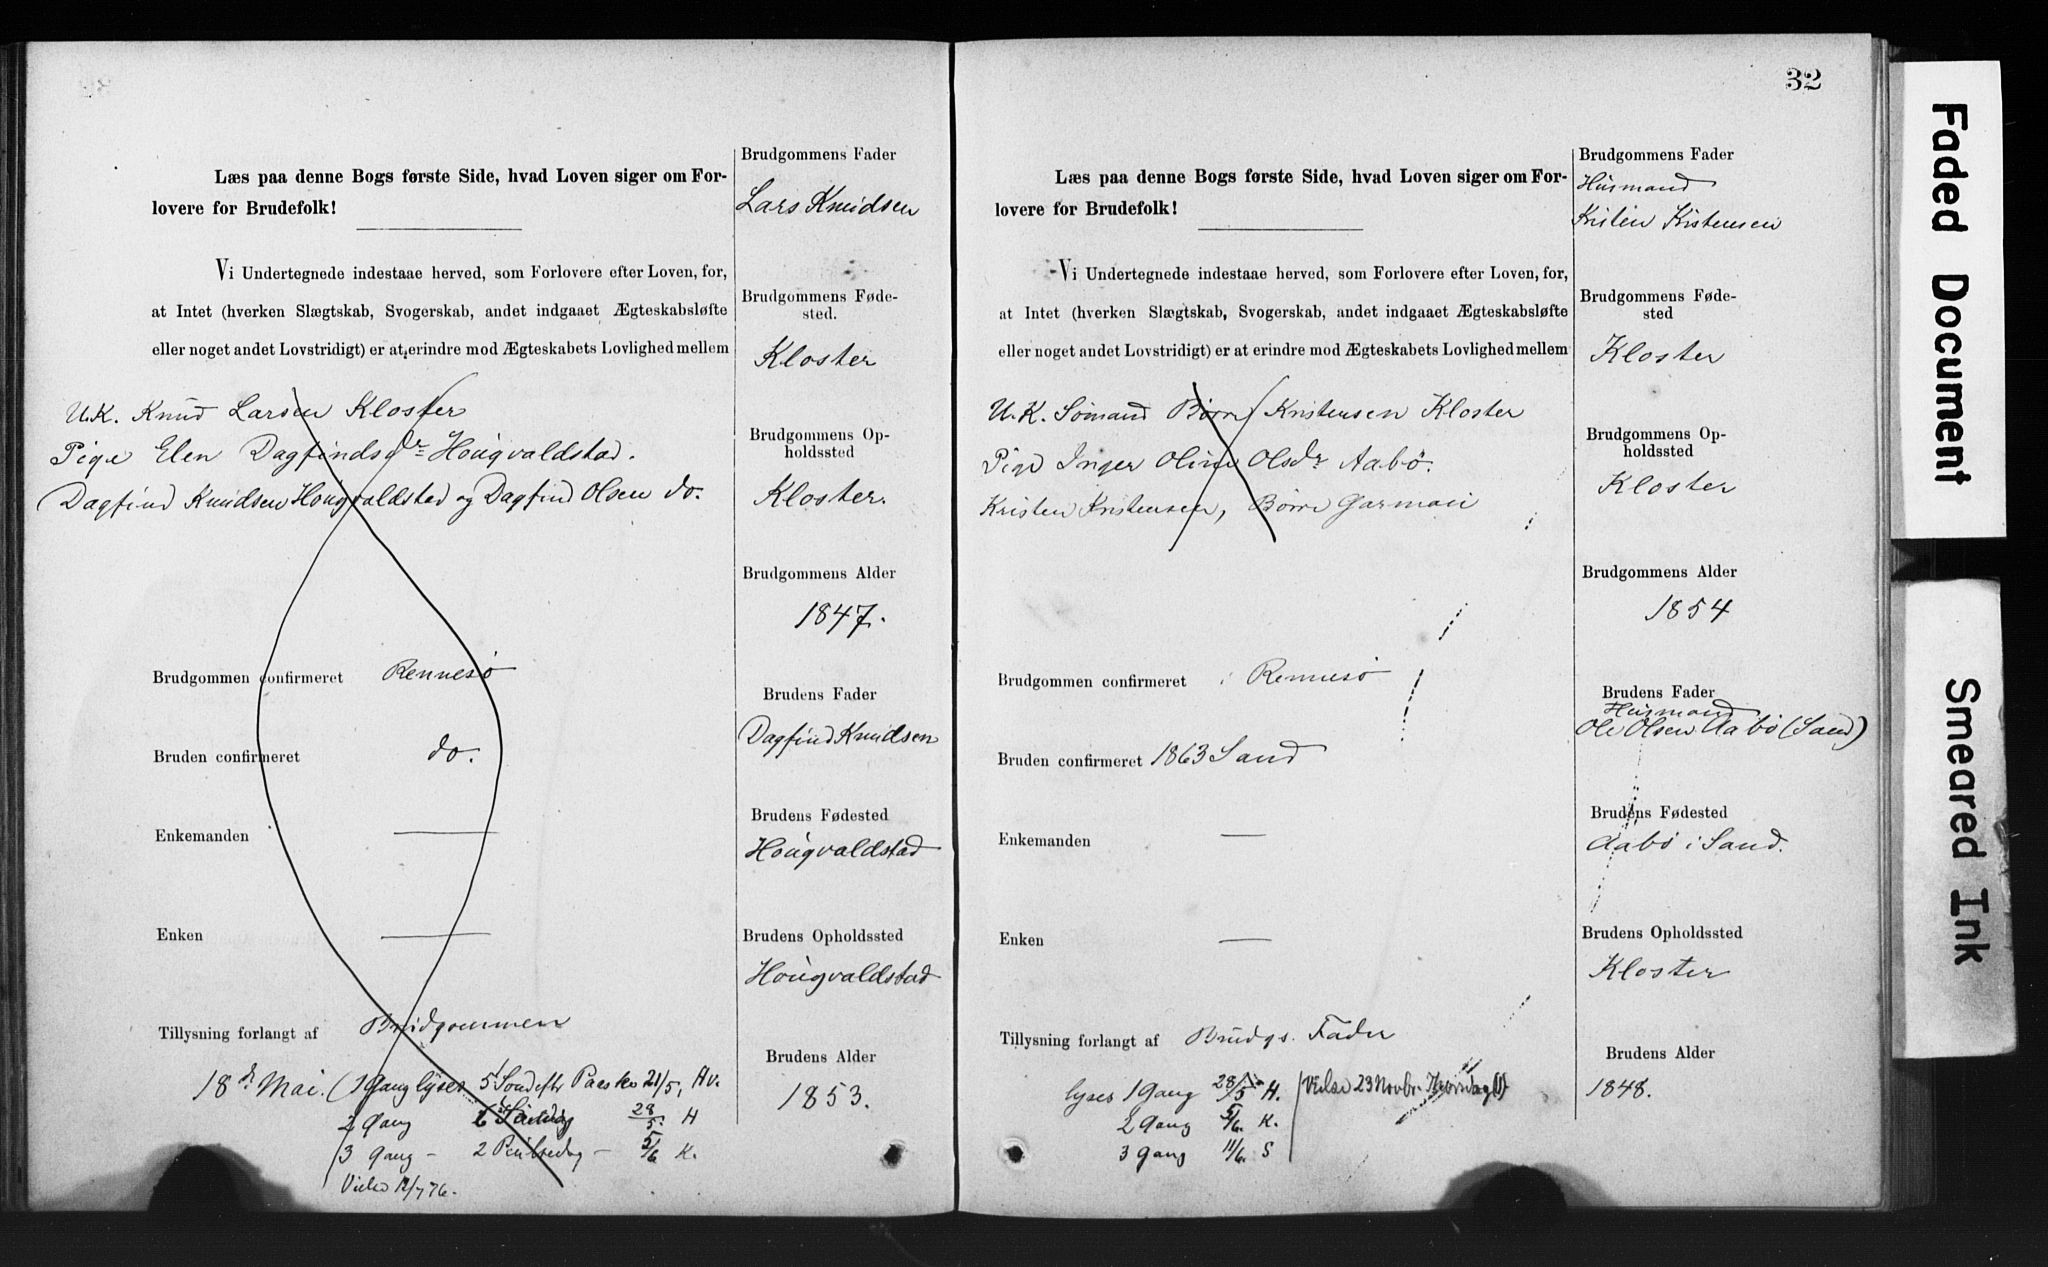 Læs paa denne Bogs første Side, hvad Loven siger om For-
lovere for Brudefolk!
Vi Undertegnede indestaae herved, som Forlovere efter Loven, for,
at Intet (hverken Slægtskab, Svogerskab, andet indgaaet Ægteskabsløfte
eller noget andet Lovstridigt) er at erindre mod Ægteskabets Lovlighed mellem
U.K. Knud Larsen Kloster
Pige Elen Dagfindsdr Hougvaldstad.
Dagfind Knudsen Hougvaldstad og Dagfind Olsen do.
Brudgommen confirmeret Rennesö
Bruden confirmeret do.
Enkemanden
Enken
Tillysning forlangt af Brudgommen
18 d. Mai. (1 Gang lyses 5 Sond efter Paaske 21/5, Hv.
2 Gang 6 Söndag 28/5. H
3 Gang - 2 Pintsedag - 5/6 K.
Viede 12/7 76.
Brudgommens Fader
Lars Knudsen
Brudgommens Føde-
sted.
Kloster
Brudgommens Op-
holdssted
Kloster.
Brudgommens Alder
1847.
Brudens Fader
Dagfind Knudsen
Brudens Fødested
Hougvaldstad
Brudens Opholdssted
Hougvaldstad
Brudens Alder
1853.
32
Læs paa denne Bogs første Side, hvad Loven siger om For-
lovere for Brudefolk!
Vi Undertegnede indestaae herved, som Forlovere efter Loven, for,
at Intet (hverken Slægtskab, Svogerskab, andet indgaaet Ægteskabsløfte
eller noget andet Lovstridigt) er at erindre mod Ægteskabets Lovlighed mellem
U.K. Sömand Börre Kristensen Kloster
Pige Inger Oline Olsdr Aabö.
Kristen Kristensen, Börre Garman
Brudgommen confirmeret i Rennesö
Bruden confirmeret 1863 Sand
Enkemanden
Enken
Tillysning forlangt af Brudgs. Fader
lyses 1 Gang 28/5 H. Viede 23 Novbr. Thorsdag
2 Gang 5/6. K.
3 Gang 11/6. S
Brudgommens Fader
Husmand
Kristen Kristensen
Brudgommens Føde-
sted
Kloster
Brudgommens Op-
holdssted
Kloster
Brudgommens Alder
1854
Brudens Fader
Husmand
Ole Olsen Aabö (Sand)
Brudens Fødested
Aabö i Sand.
Brudens Opholdssted
Kloster
Brudens Alder
1848.
Faded Document
Smeared Ink